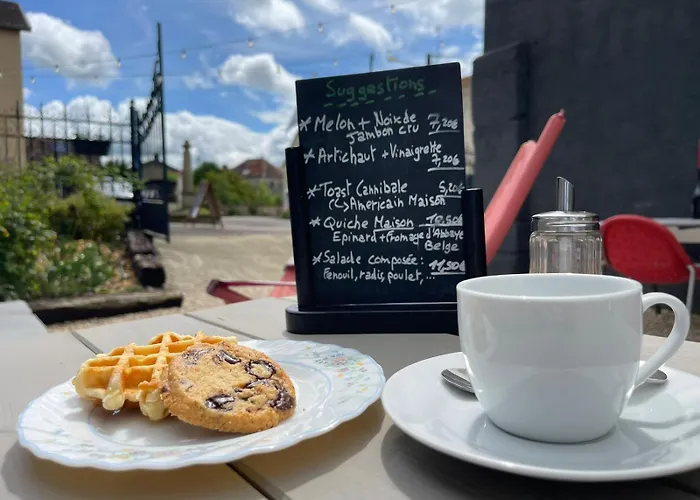 Suggestions
* Melon + Noix de 7,20€
jambon cru
* Artichaut + Vinaigrette 7,20€
* Toast Cannibale 5,20€
(↳ Americain Maison)
* Quiche Maison 10,50€
Epinard + Fromage d'Abbaye
Belge
* Salade composée: 11,50€
Fenouil, radis, poulet, ...